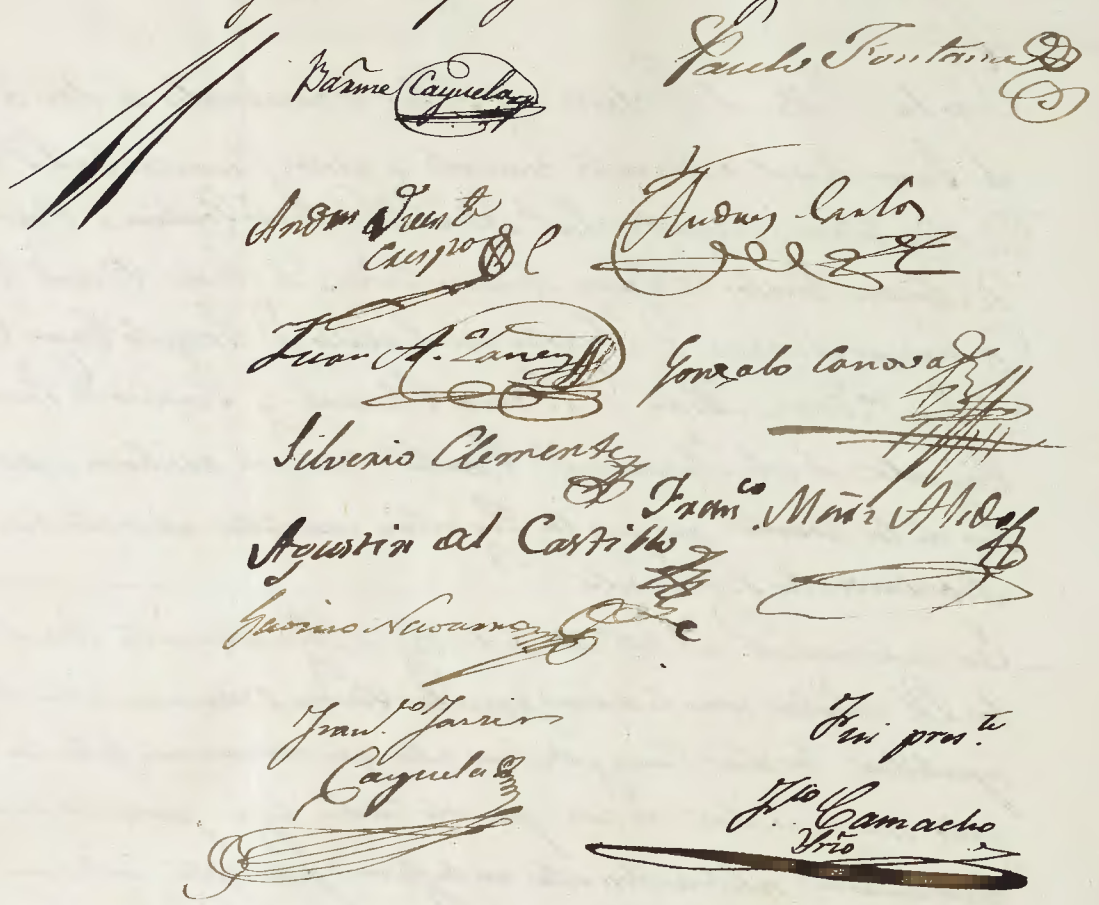 Barme Cayuela
Paulo Fontana
Andrés Fuente
Crespo
Andres
Juan A. Yañez
Gonzalo Canovas
Silverio Clemente
Fran.co Muñiz
Agustin del Castillo
Navarro
Fran.co
Cayuela
Fui pres.te
Camacho
Srio